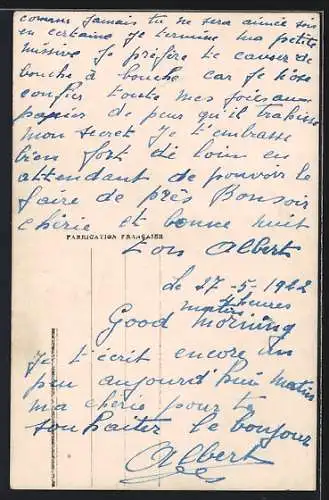 comme jamais tu ne sera aimée sois
en certaine je termine ma petite
missive Je préfère te causer de
bouche à bouche car je n'ose
confier toute mes joies aux
papier de peur qu'il trahisse
mon secret Je t'embrasse
bien fort de loin en
attendant de pouvoir le
faire de près Bonsoir
chérie et bonne nuit
FABRICATION FRANÇAISE
ton Albert
Le 27-5-1922
heures
matin
Good morning
Je t'écrit encore un
peu aujourd'hui matin
ma chérie pour te
souhaiter le bonjour
Albert